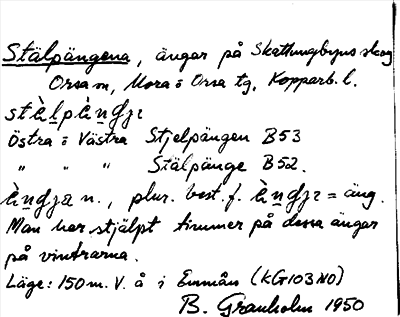 Stälpängena, ängar på Skattungbyns skog
Orsa sn, Mora o Orsa tg, Kopparb. l.
stè̀lpὲ̀ndjɪ
Östra o Västra Stjelpängen B53
" " " Stälpänge B52.
ὲ̀ndja n., plur. best. f. ὲ̀ndjɪ = äng.
Man har stjälpt timmer på dessa ängar
på vintrarna.
Läge: 150 m. V. å i Emmån (KG103NO)
B. Granholm 1950